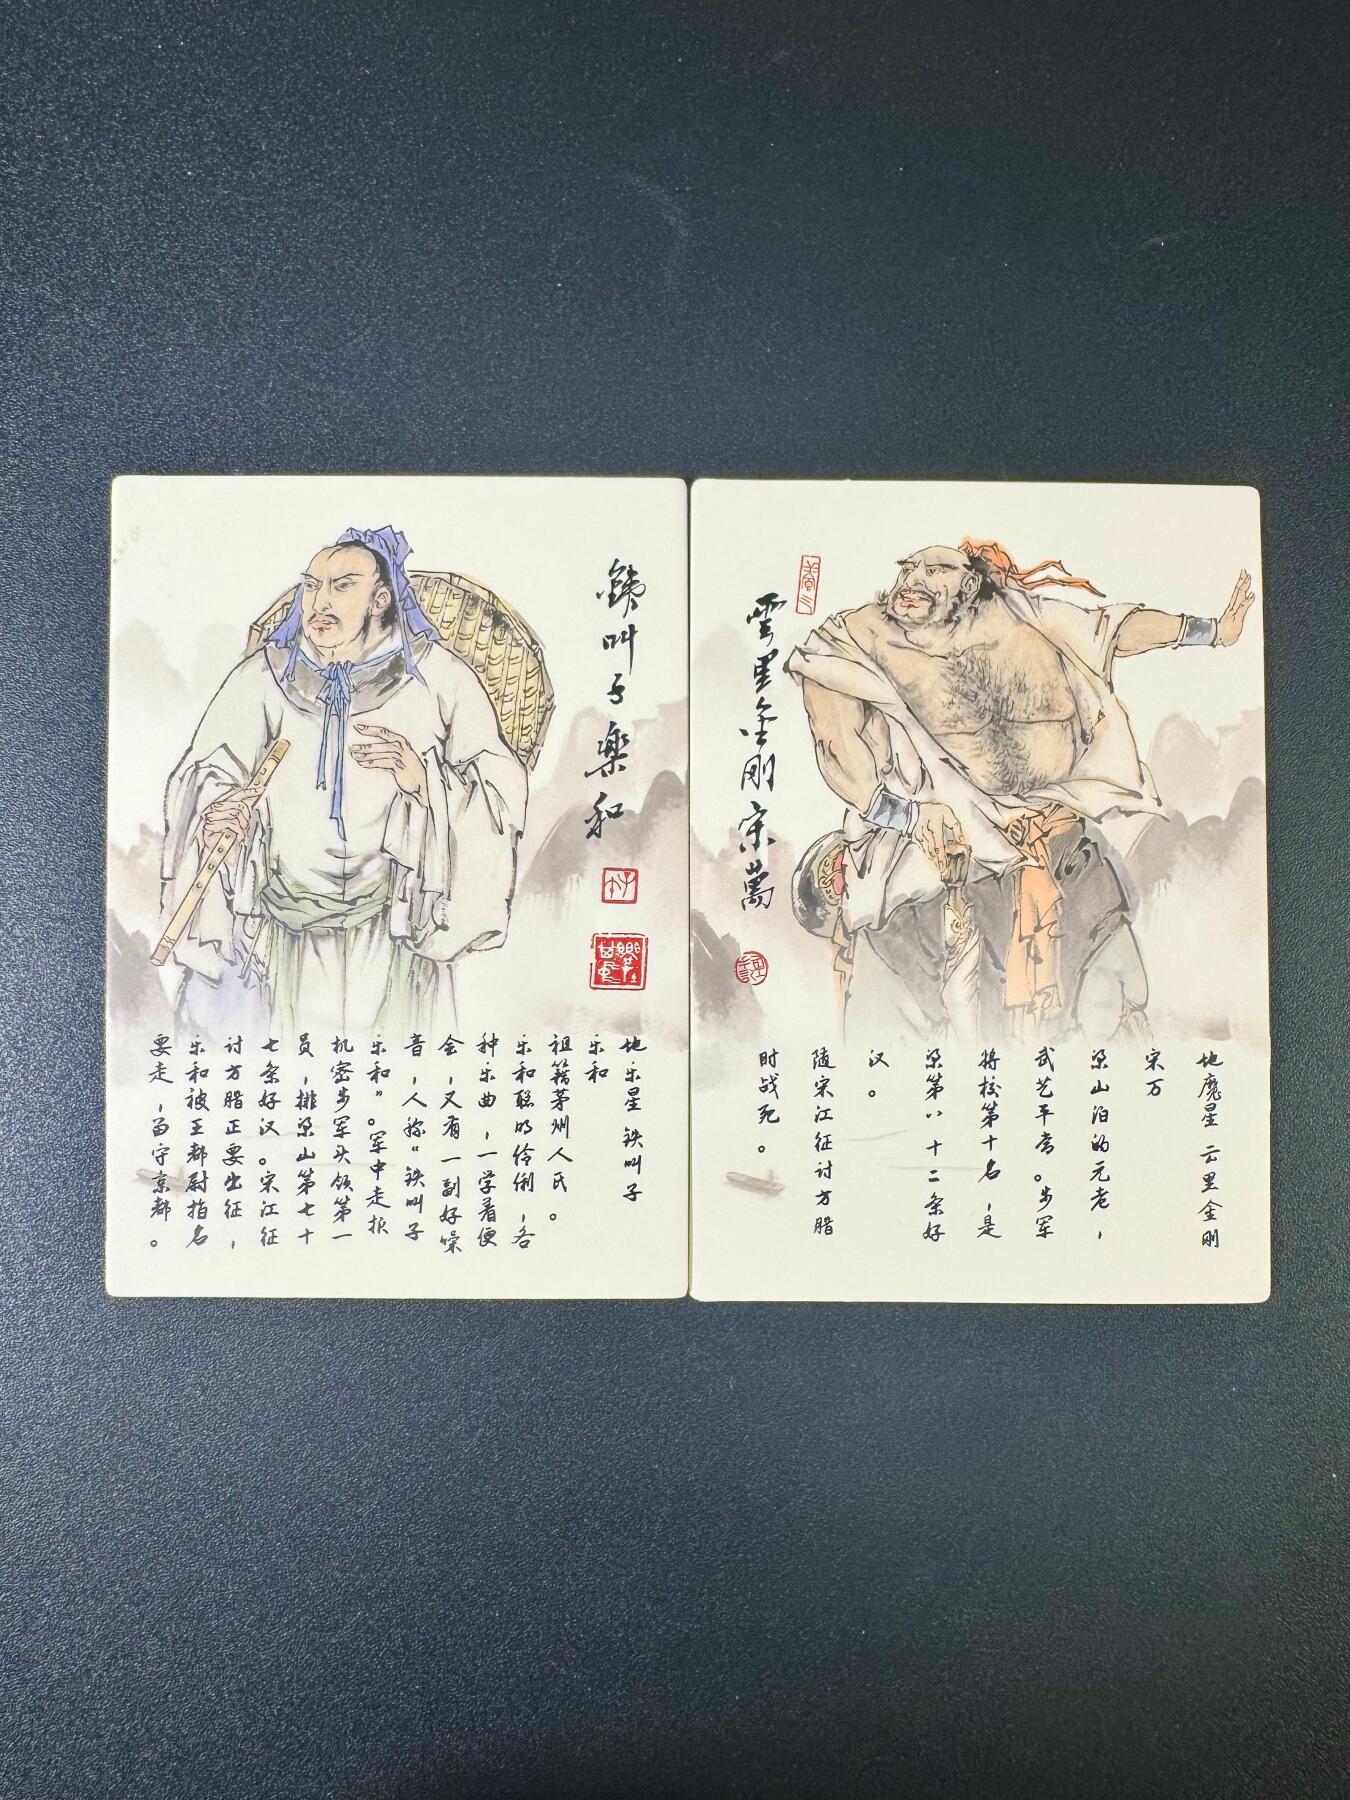 鐵叫子樂和
地乐星 铁叫子
乐和
祖籍茅州人氏。
乐和聪明伶俐，各
种乐曲，一学着便
会，又有一副好嗓
音，人称“铁叫子
乐和”。军中走报
机密步军头领第一
员，排梁山第七十
七条好汉。宋江征
讨方腊正要出征，
乐和被王都尉指名
要走，留守京都。
雲里金刚宋萬
地魔星 云里金刚
宋万
梁山泊的元老，
武艺平常。步军
将校第十名，是
梁第八十二条好
汉。
随宋江征讨方腊
时战死。